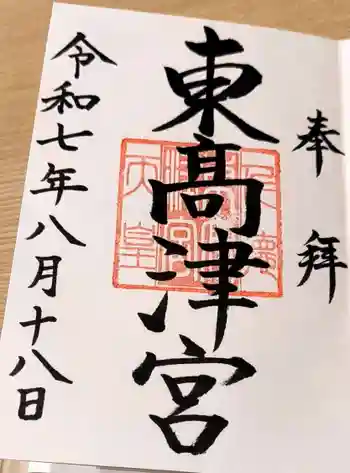 奉拝
東高津宮
令和七年八月十八日